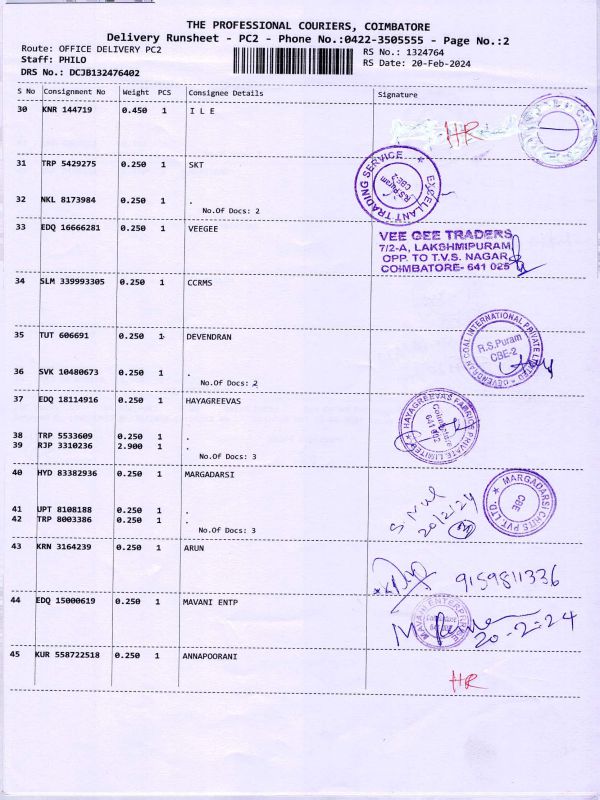 THE PROFESSIONAL COURIERS, COIMBATORE
Delivery Runsheet - PC2 - Phone No.:0422-3505555 - Page No.:2
Route: OFFICE DELIVERY PC2
RS No.: 1324764
Staff: PHILO
RS Date: 20-Feb-2024
DRS No.: DCJB132476402
S No Consignment No Weight PCS Consignee Details Signature
30 KNR 144719 0.450 1 I L E
HR
31 TRP 5429275 0.250 1 SKT
EXCELLANT TRADING SERVICE
R.S.Puram
CBE-2
32 NKL 8173984 0.250 1 .
No.Of Docs: 2
33 EDQ 16666281 0.250 1 VEEGEE
VEE GEE TRADERS
7/2-A, LAKSHMIPURAM
OPP. TO T.V.S. NAGAR
COIMBATORE- 641 025
34 SLM 339993305 0.250 1 CCRMS
35 TUT 606691 0.250 1 DEVENDRAN
DEVENDRAN COAL INTERNATIONAL PRIVATE LIMITED
R.S.Puram
CBE-2
36 SVK 10480673 0.250 1 .
No.Of Docs: 2
37 EDQ 18114916 0.250 1 HAYAGREEVAS
HAYAGREEVAS FABRIC PRIVATE LIMITED
Coimbatore
641 002
38 TRP 5533609 0.250 1 .
39 RJP 3310236 2.900 1 .
No.Of Docs: 3
40 HYD 83382936 0.250 1 MARGADARSI
MARGADARSI CHITS PVT. LTD.
CBE
20/2/24
3
41 UPT 8108188 0.250 1 .
42 TRP 8003386 0.250 1 .
No.Of Docs: 3
43 KRN 3164239 0.250 1 ARUN
9159811336
44 EDQ 15000619 0.250 1 MAVANI ENTP
MAVANI ENTERPRISE
20-2-24
45 KUR 558722518 0.250 1 ANNAPOORANI
HR